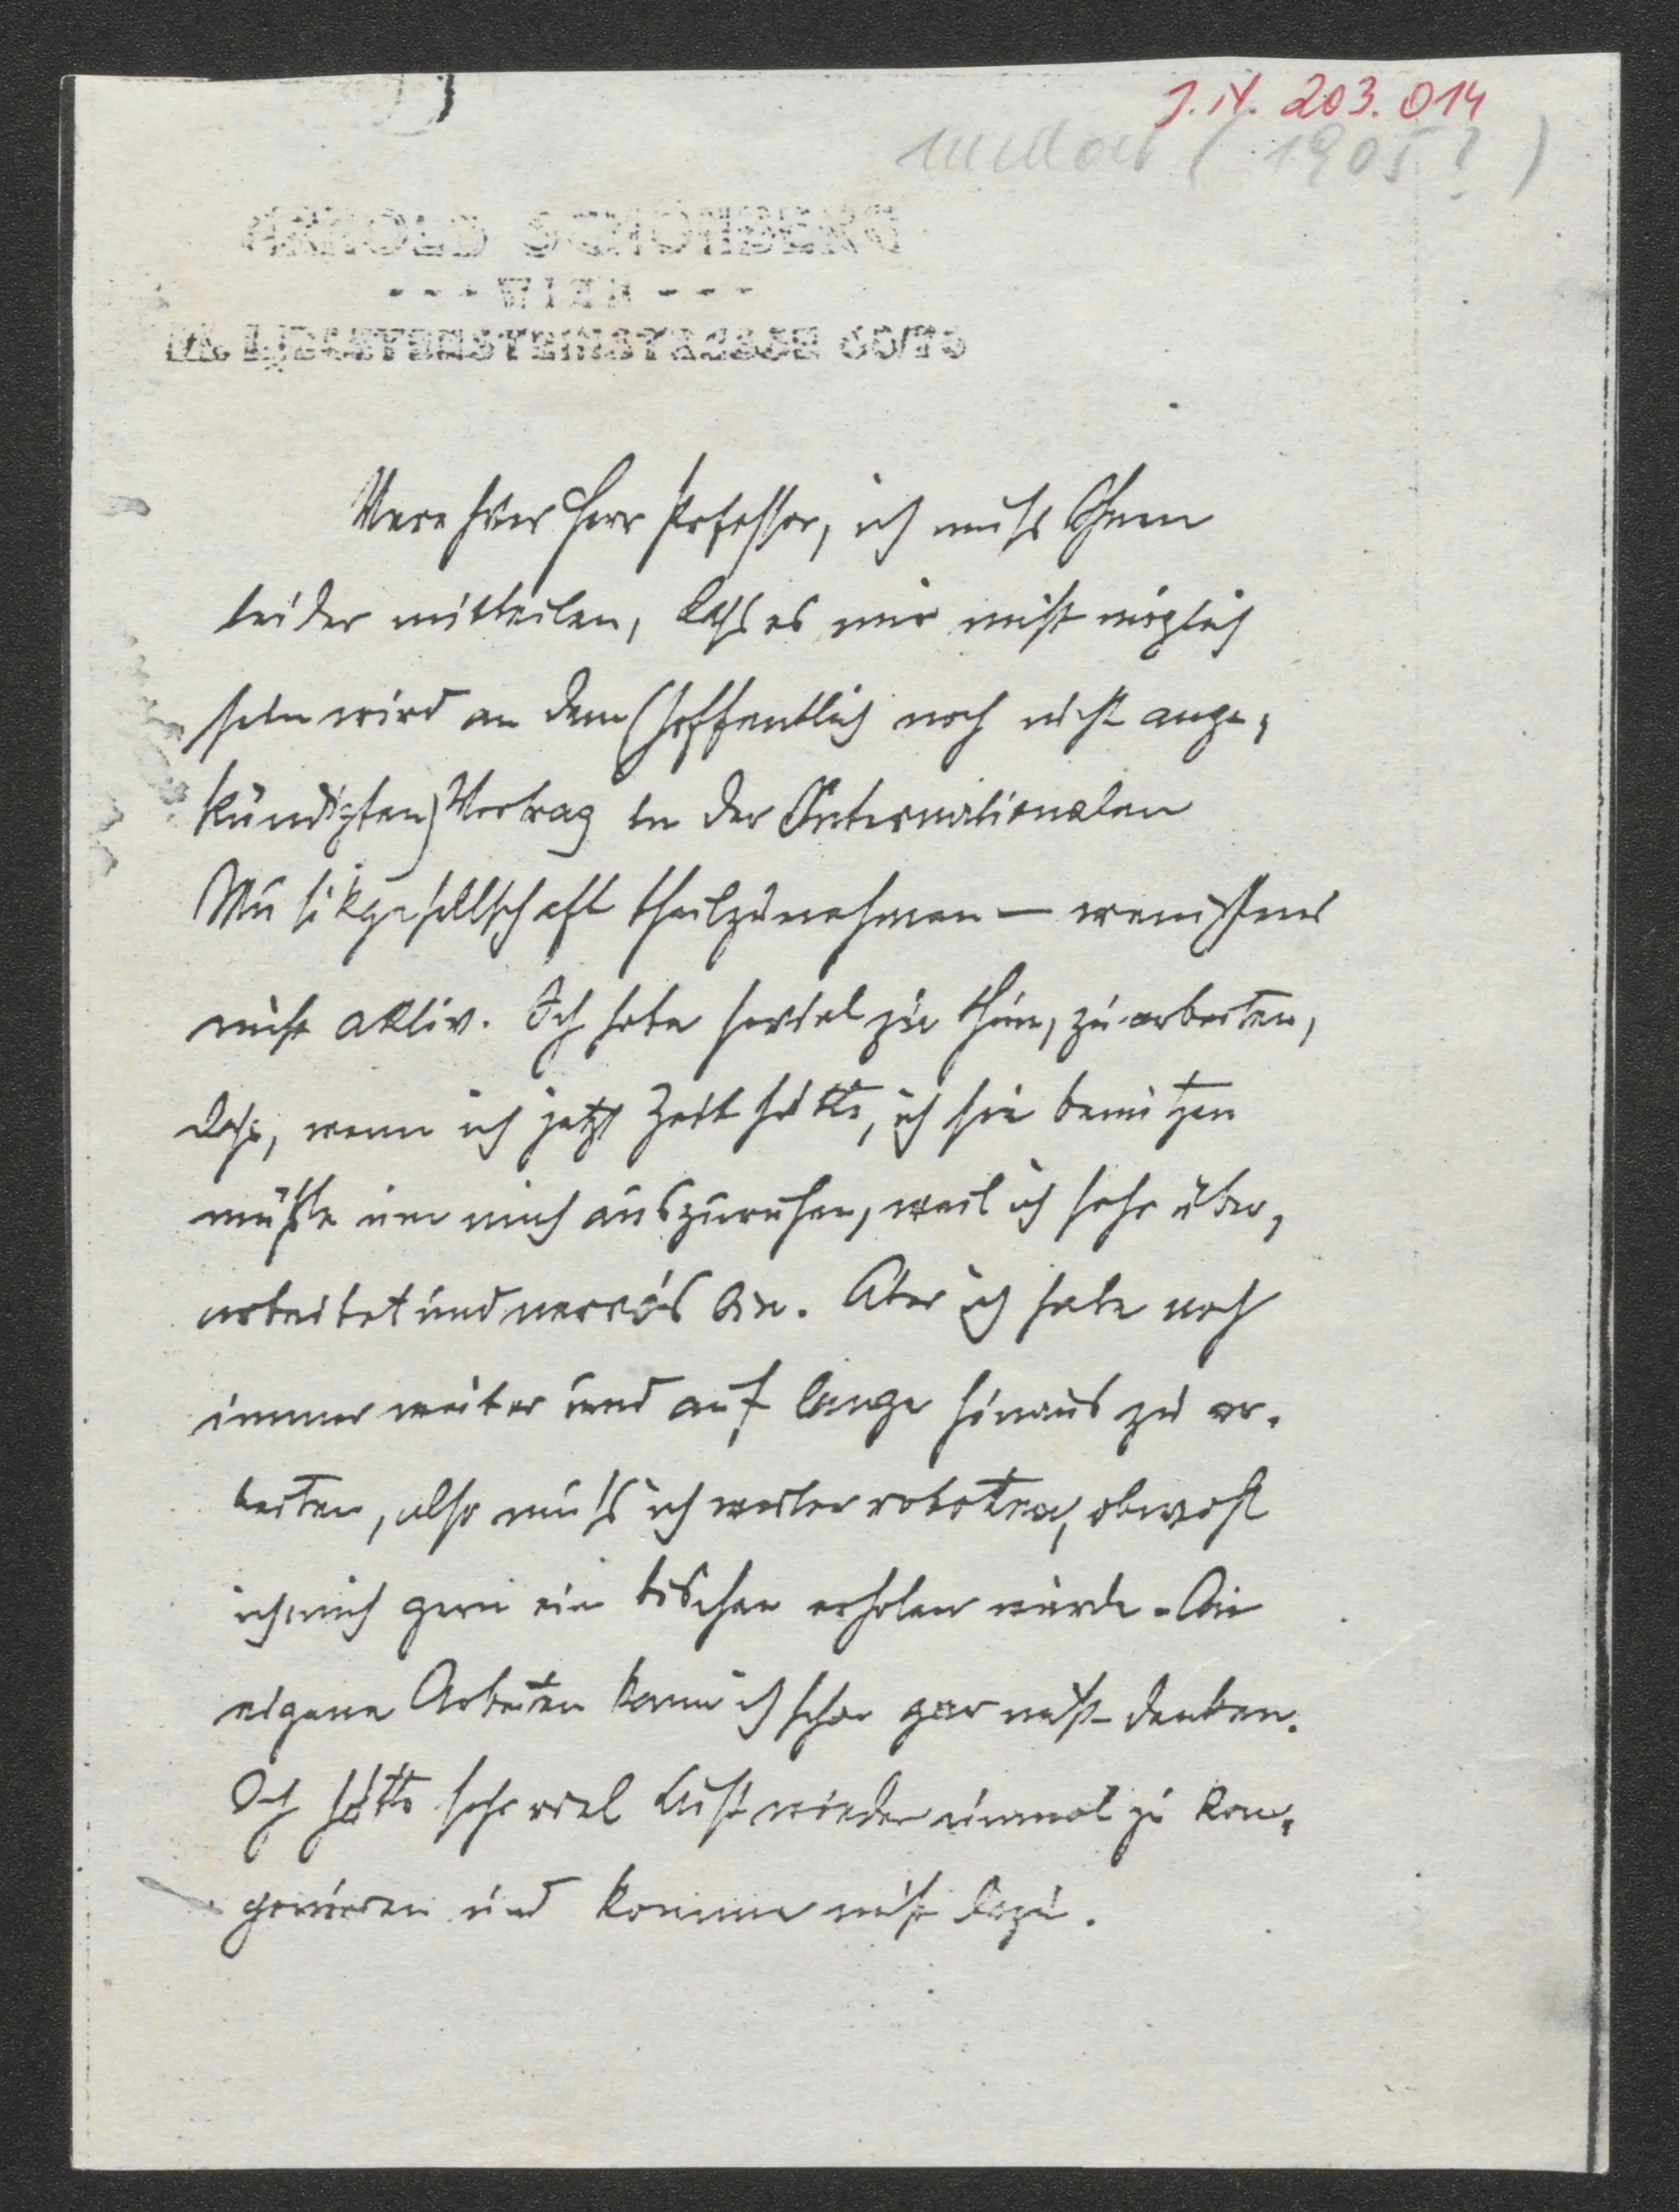 J.N. 203.014
undat (1905?)
ARNOLD SCHÖNBERG
- - - WIEN - - -
IX. LIECHTENSTEINSTRASSE 68/70
Verehrter Herr Professor, ich muß Ihnen
leider mitteilen, daß es mir nicht möglich
sein wird an dem (hoffentlich noch nicht ange-
kündigten) Vortrag in der Internationalen
Musikgesellschaft theilzunehmen — wenigstens
nicht aktiv. Ich habe soviel zu thun, zu arbeiten,
daß, wenn ich jetzt Zeit hätte, ich sie benützen
müßte um mich auszuruhen, weil ich sehr über-
arbeitet und nervös bin. Aber ich habe noch
immer weiter und auf lange hinaus zu ar-
beiten, also muß ich weiter roboten, obwohl
ich mich gern ein bischen erholen würde. An
eigene Arbeiten kann ich schon gar nicht denken.
Ich hätte sehr viel Lust wieder einmal zu kom-
ponieren und komme nicht dazu.